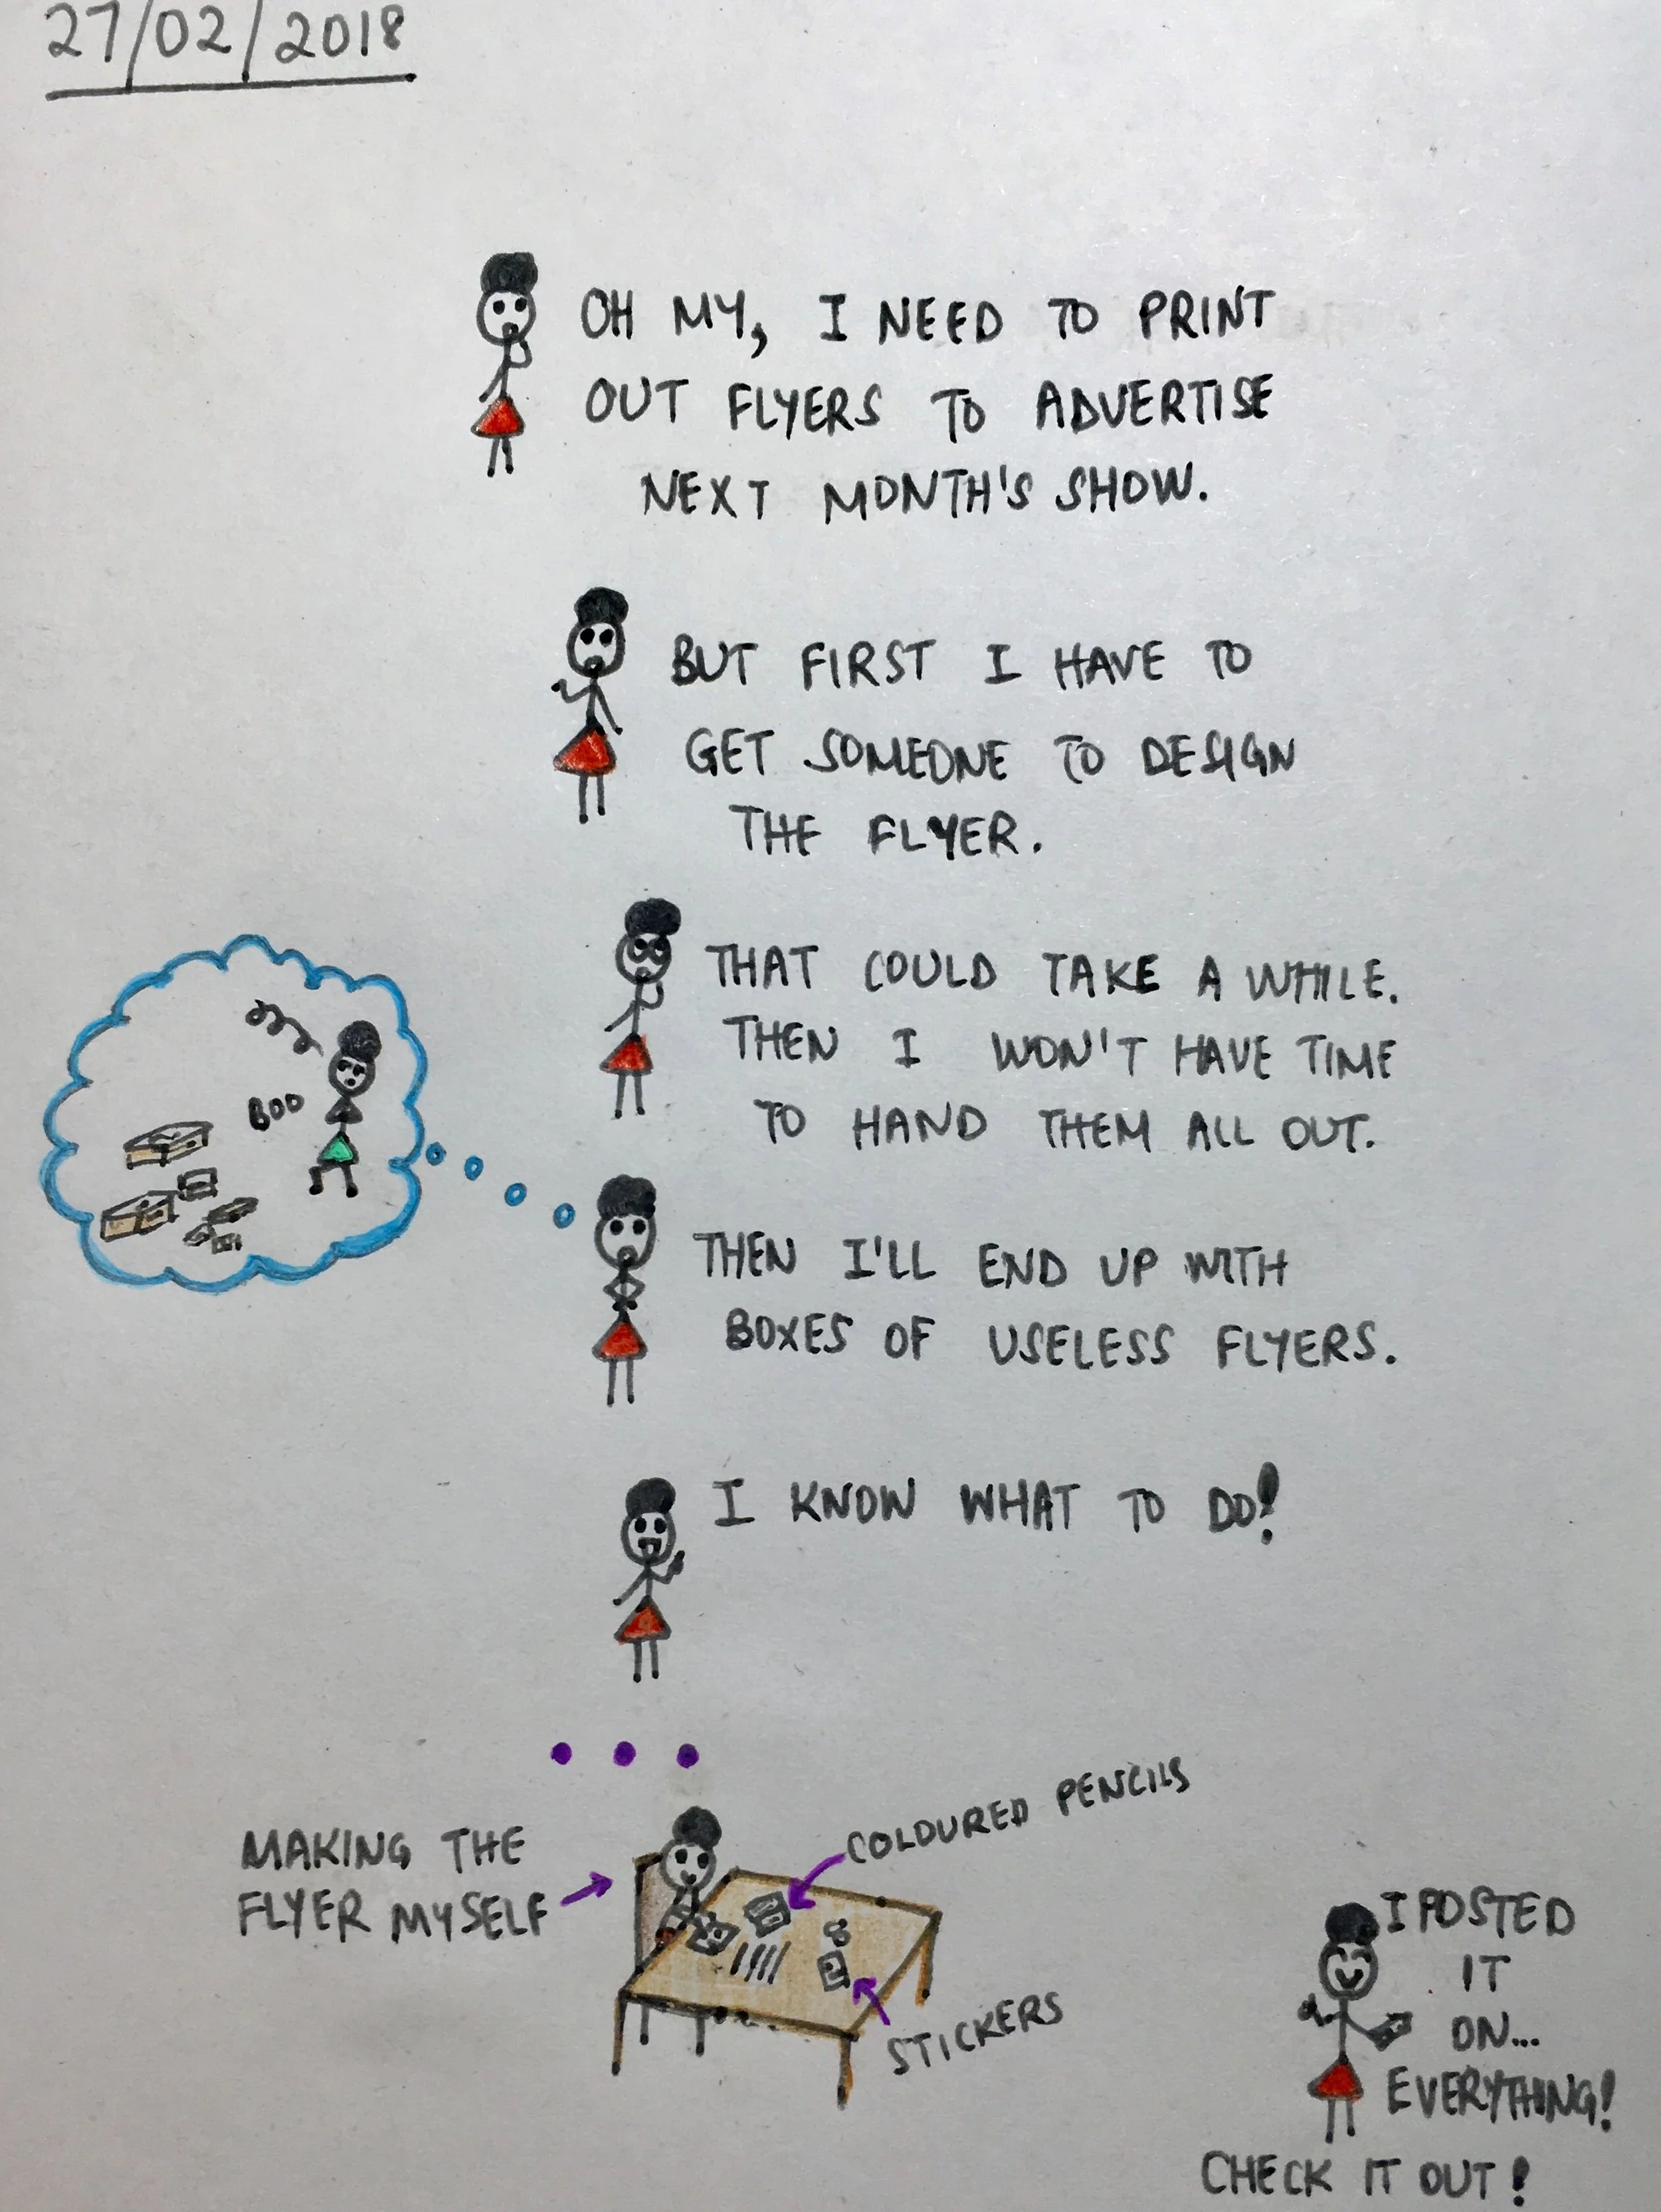 27/02/2018
OH MY, I NEED TO PRINT
OUT FLYERS TO ADVERTISE
NEXT MONTH'S SHOW.
BUT FIRST I HAVE TO
GET SOMEONE TO DESIGN
THE FLYER.
THAT COULD TAKE A WHILE.
THEN I WON'T HAVE TIME
TO HAND THEM ALL OUT.
BOO
THEN I'LL END UP WITH
BOXES OF USELESS FLYERS.
I KNOW WHAT TO DO!
MAKING THE
FLYER MYSELF
COLOURED PENCILS
STICKERS
I POSTED
IT
ON...
EVERYTHING!
CHECK IT OUT!